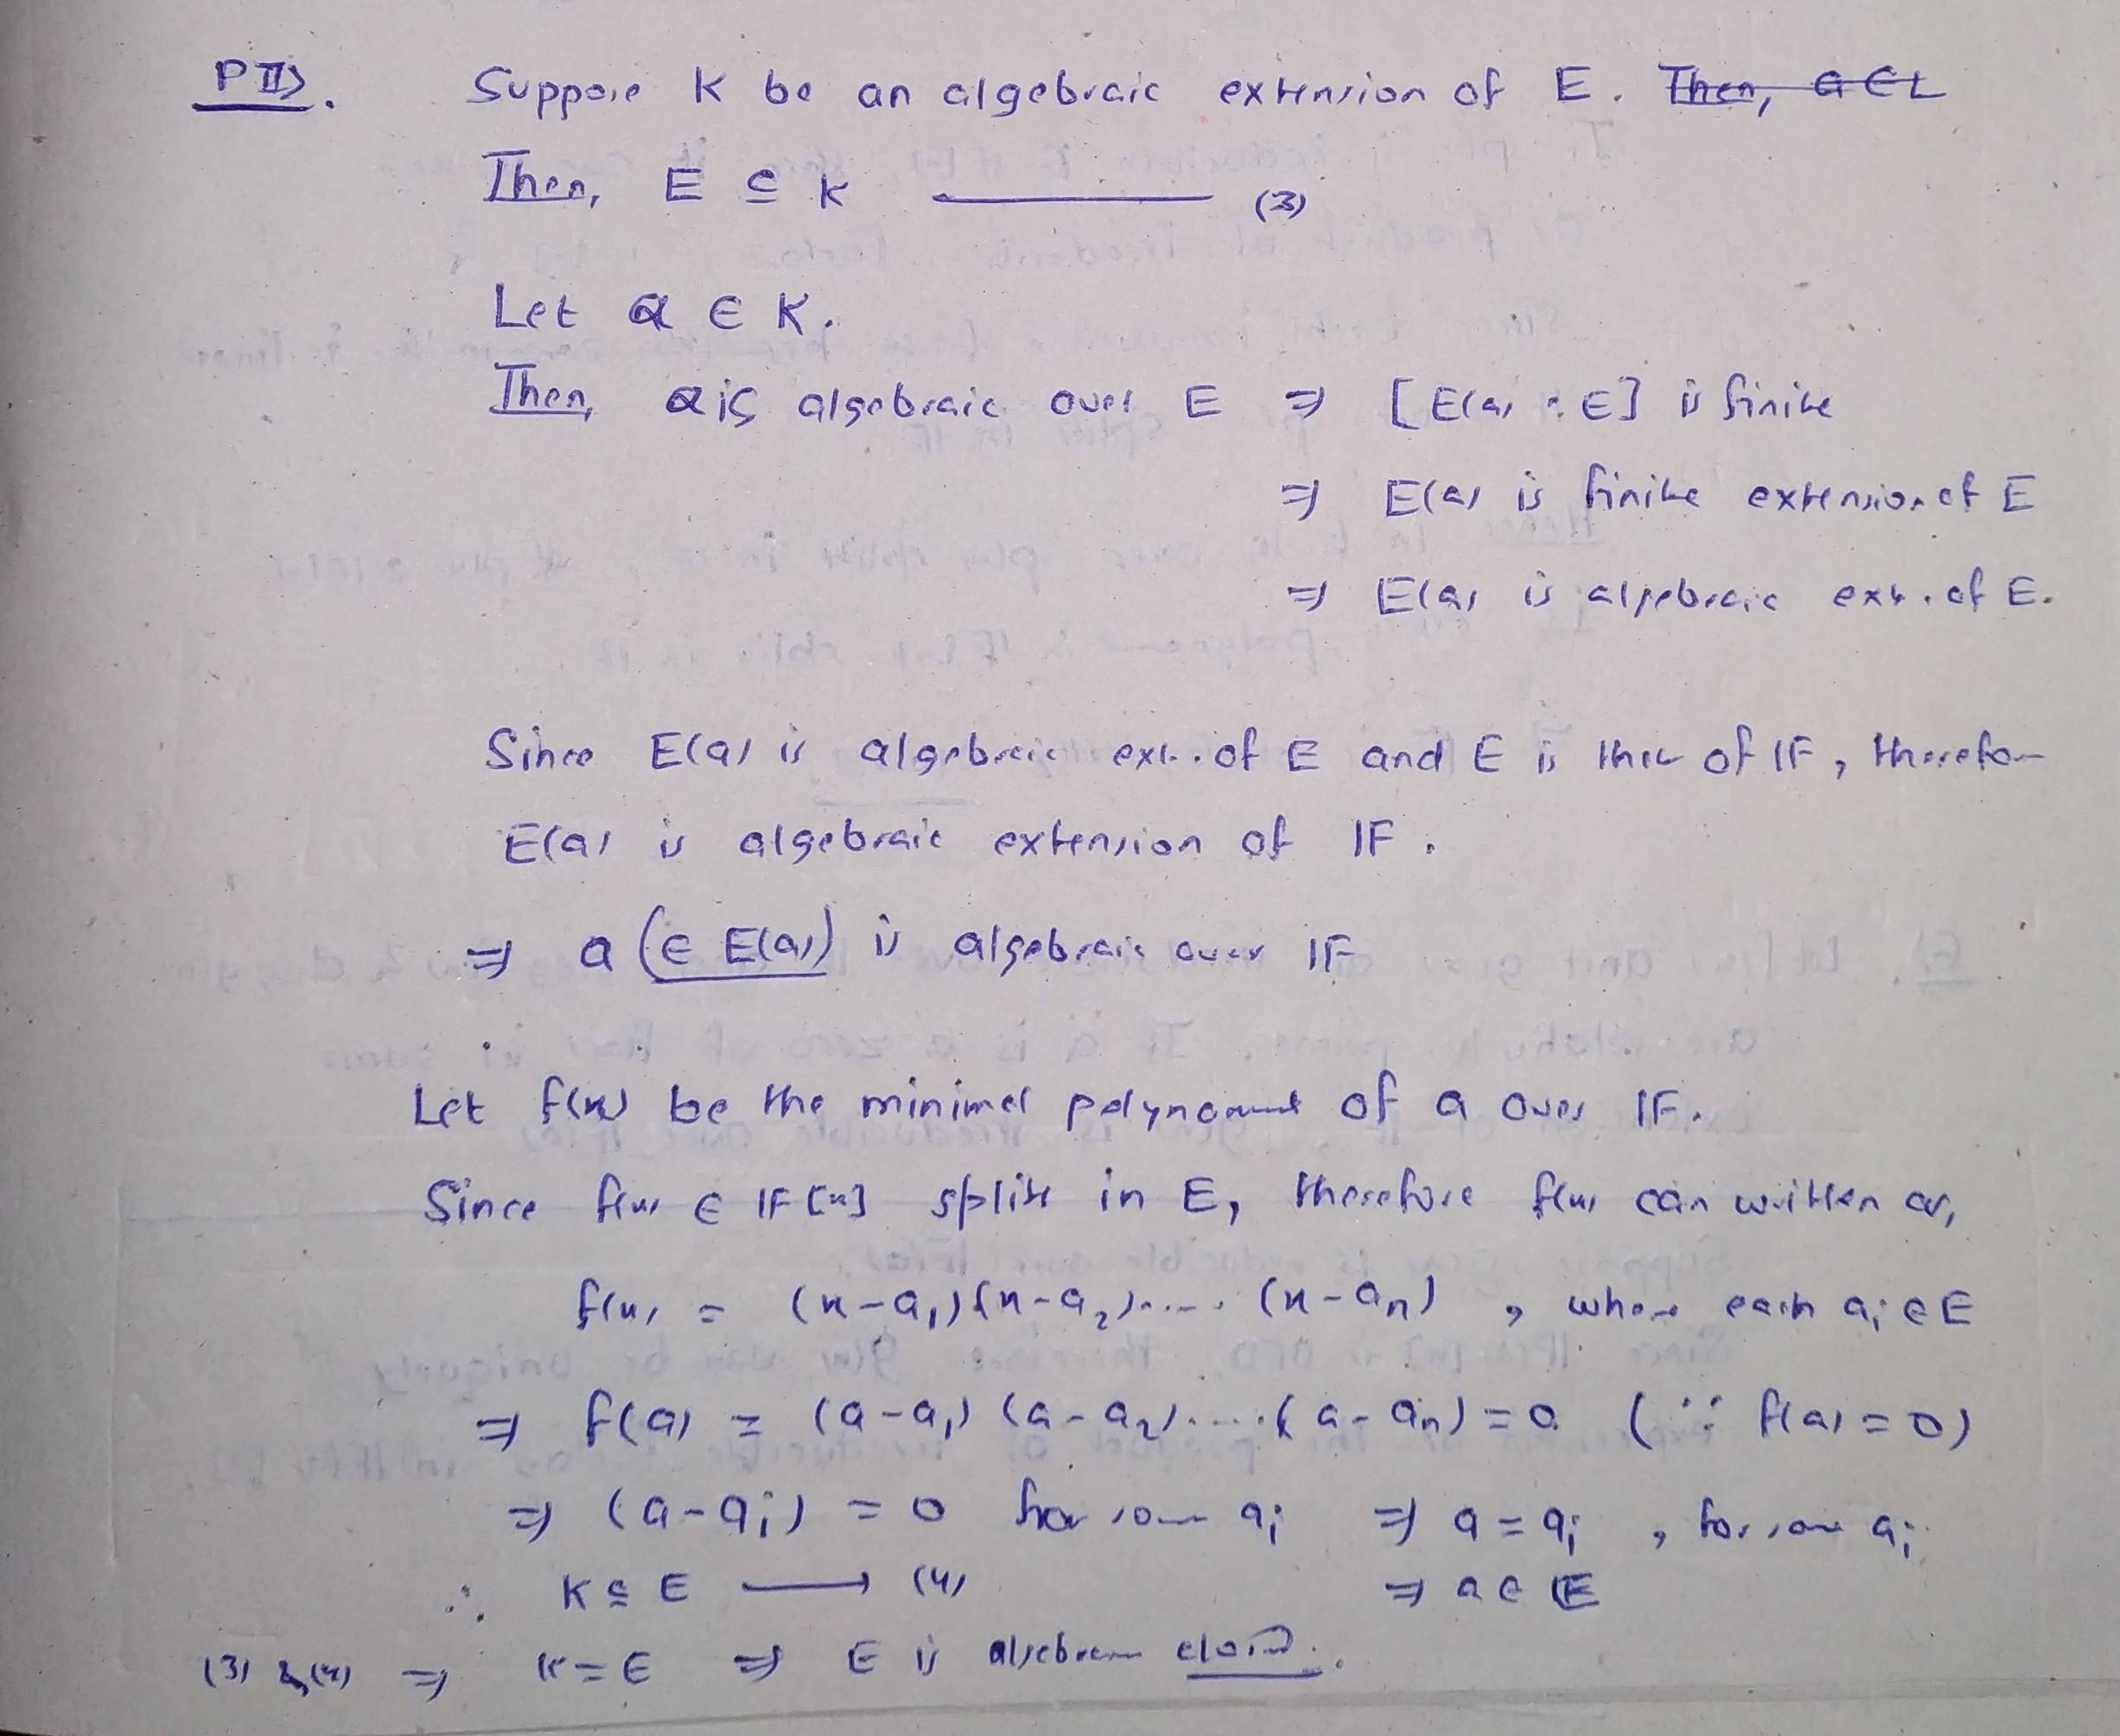 PII). Suppose K be an algebraic extension of E. Then, a ∈ L
Then, E ⊆ K ——— (3)
Let a ∈ K.
Then, a is algebraic over E ⇒ [E(a) : E] is finite
⇒ E(a) is finite extension of E
⇒ E(a) is algebraic ext. of E.
Since E(a) is algebraic ext. of E and E is that of IF, therefore
E(a) is algebraic extension of IF.
⇒ a (∈ E(a)) is algebraic over IF
Let f(x) be the minimal polynomial of a over IF.
Since f(x) ∈ IF[x] splits in E, therefore f(x) can written as,
f(x) = (x-a₁)(x-a₂)..... (x-aₙ) , where each aᵢ ∈ E
⇒ f(a) = (a-a₁) (a-a₂).....(a-aₙ) = 0 (∵ f(a) = 0)
⇒ (a-aᵢ) = 0 for some aᵢ ⇒ a = aᵢ , for some aᵢ
∴ K ⊆ E ⟶ (4) ⇒ a ∈ E
(3) & (4) ⇒ K = E ⇒ E is algebraic closed.